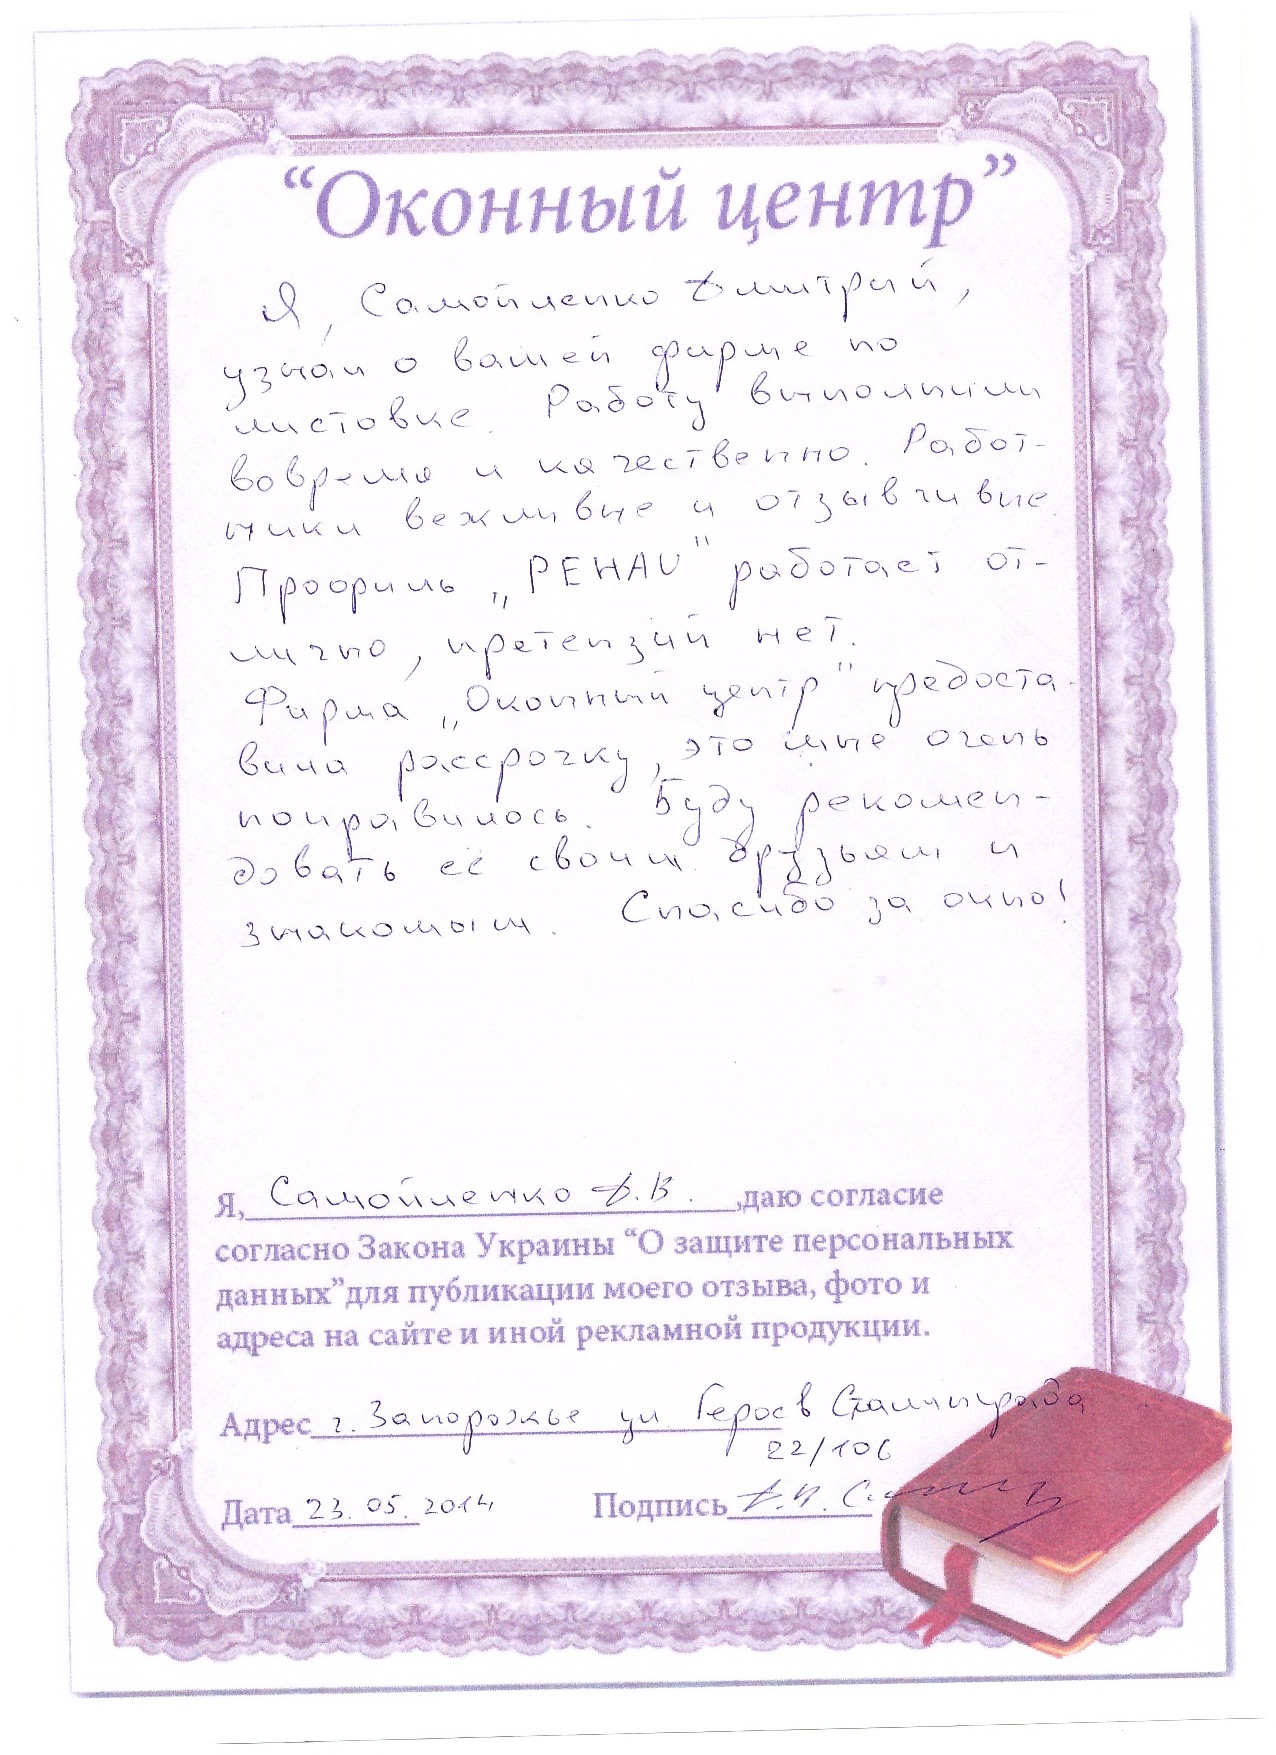 “Оконный центр”
Я, Самойленко Дмитрий,
узнал о вашей фирме по
листовке. Работу выполнили
вовремя и качественно. Работ-
ники вежливые и отзывчивые.
Профиль „РЕНАU" работает от-
лично, претензий нет.
Фирма „Оконный центр" предоста-
вила рассрочку, это мне очень
понравилось. Буду рекомен-
довать её своим друзьям и
знакомым. Спасибо за окно!
Я, Самойленко Д.В. ,даю согласие
согласно Закона Украины “О защите персональных
данных”для публикации моего отзыва, фото и
адреса на сайте и иной рекламной продукции.
Адрес г. Запорожье ул Героев Сталинграда
22/106
Дата 23.05.2014 Подпись Д.В.